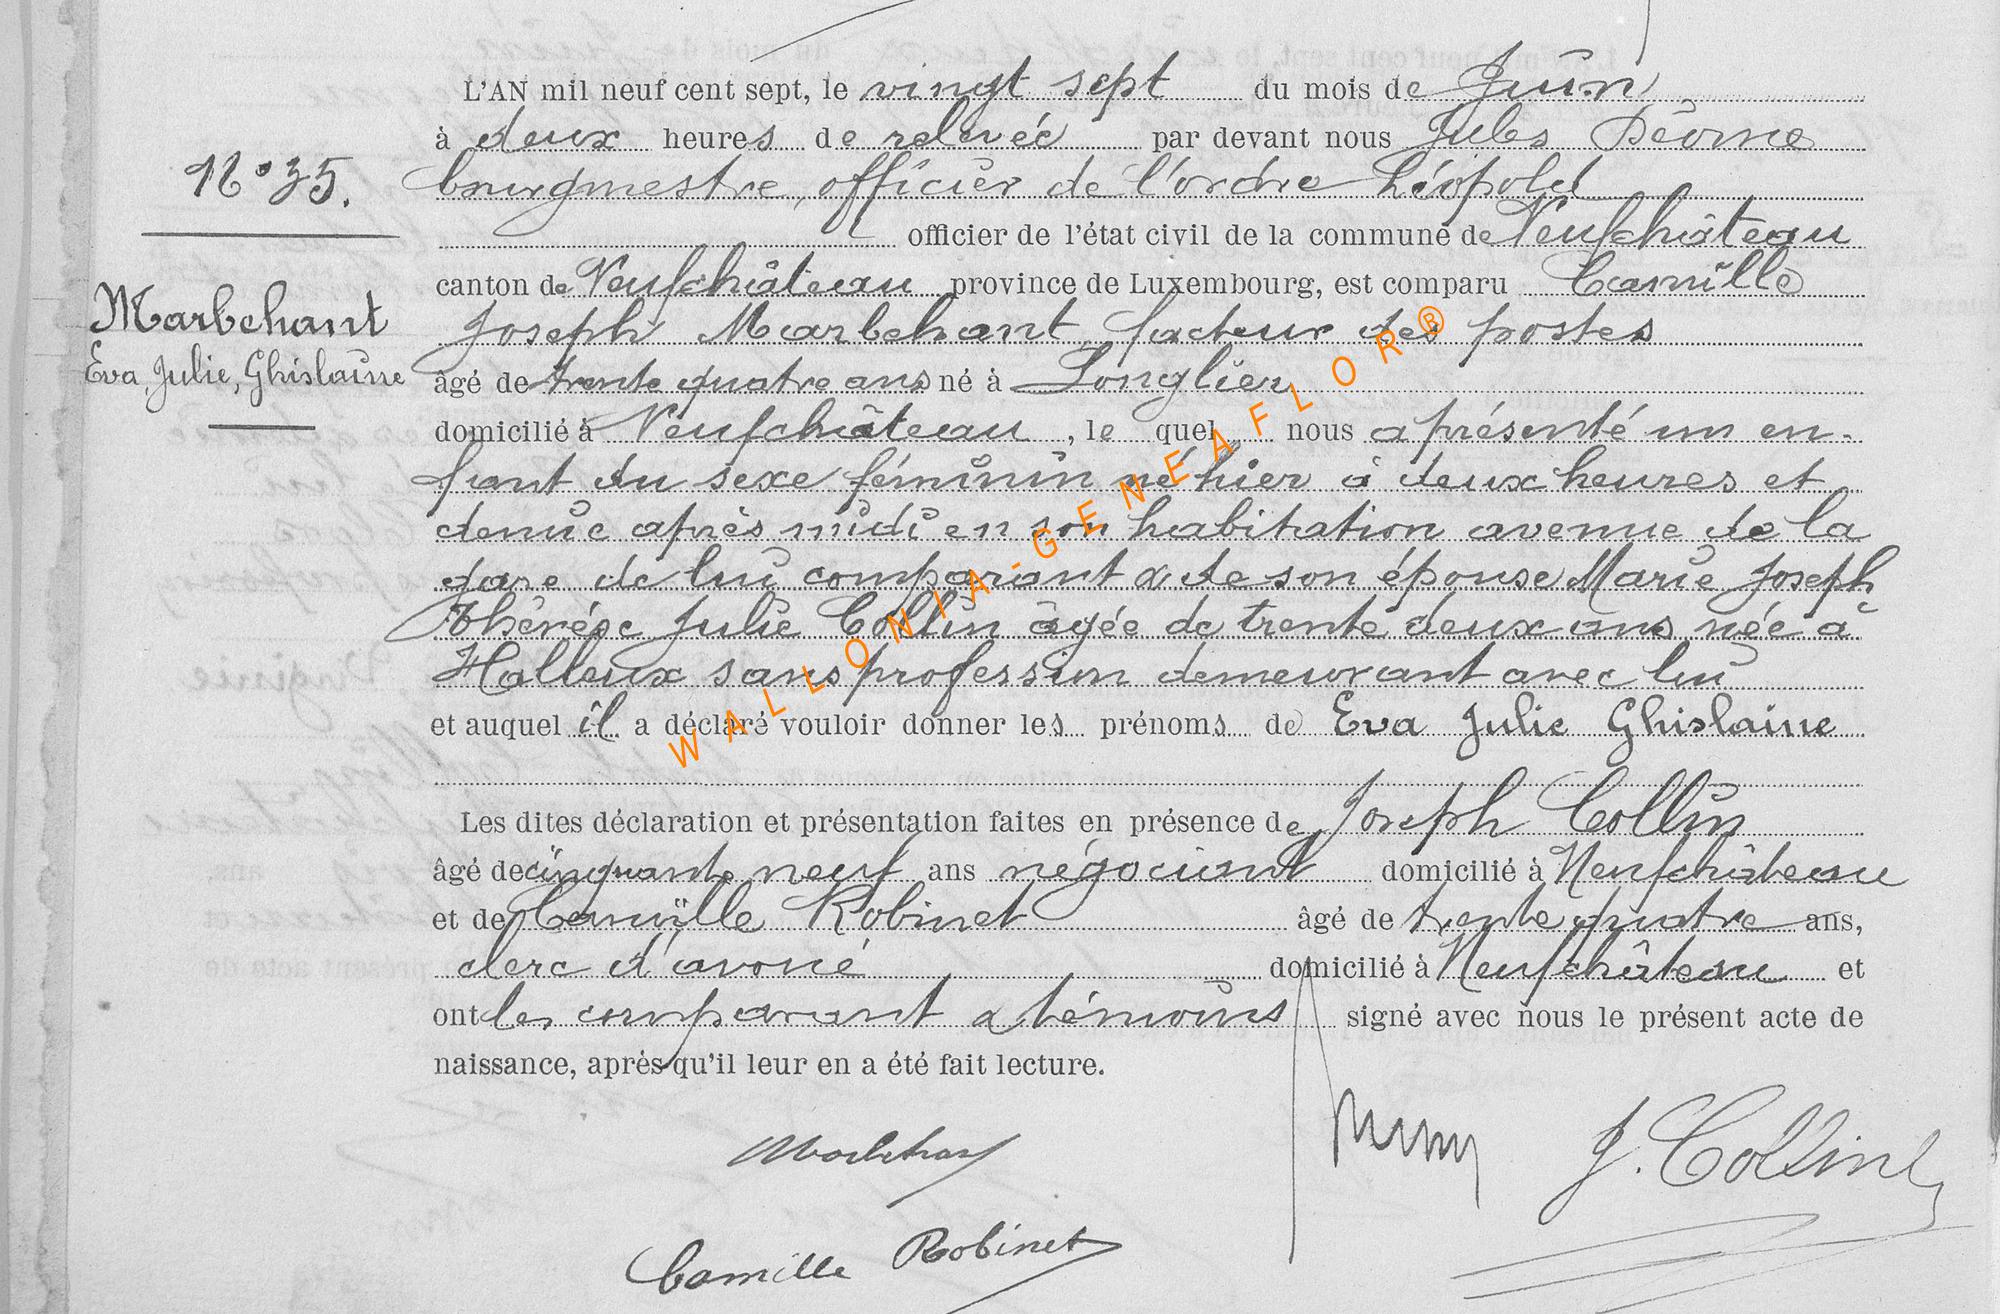 L'AN mil neuf cent sept, le vingt sept du mois de Juin
à deux heures de relevée par devant nous Jules
N° 35.
bourgmestre, officier de l'ordre Léopold
officier de l'état civil de la commune de Neufchâteau
canton de Neufchâteau province de Luxembourg, est comparu Camille
Marbehant
Joseph Marbehant facteur des postes
Eva, Julie, Ghislaine
âgé de trente quatre ans né à Longlier
domicilié à Neufchâteau, le quel nous a présenté un en-
fant du sexe féminin né hier à deux heures et
demie après midi en son habitation avenue de la
gare de lui comparant & de son épouse Marie Joseph
Thérèse Julie Collin âgée de trente deux ans née à
Halleux sans profession demeurant avec lui
et auquel il a déclaré vouloir donner les prénoms de Eva Julie Ghislaine
Les dites déclaration et présentation faites en présence de Joseph Collin
âgé de cinquante neuf ans négociant domicilié à Neufchâteau
et de Camille Robinet âgé de trente quatre ans,
clerc d'avoué domicilié à Neufchâteau et
ont les comparant & témoins signé avec nous le présent acte de
naissance, après qu'il leur en a été fait lecture.
Marbehant
J. Collin
Camille Robinet
WALLONIA-GENEAFLOR®